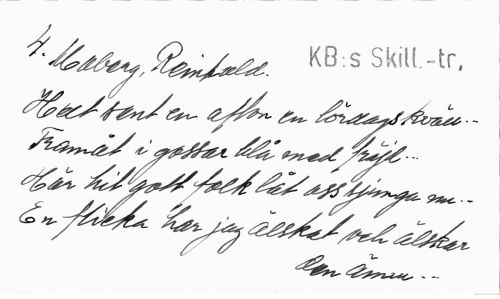 4. Moberg, Reinhold.
KB:s Skill.-tr.
Helt sent en afton en lördagskväll..
Framåt i gossar blå med fröjd..
Här hit gott folk låt oss sjunga nu..
En flicka har jag älskat och älskar
den ännu..